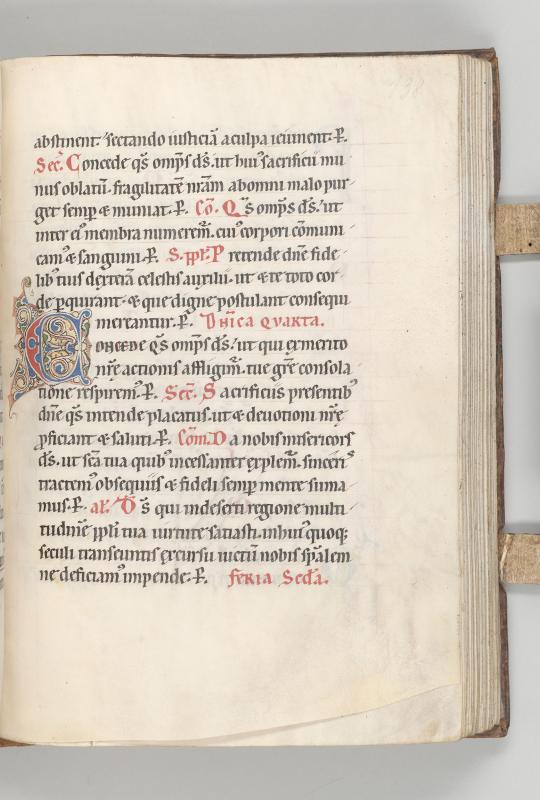 abstinent. sectando iusticiā a culpa ieiunent. P̄.
Sec̄. Concede q̄s omp̄s d̄s. ut hui᾽ sacrificii mu
nus oblatū. fragilitatē nr̄am ab omni malo pur
get semp̄ & muniat. P̄. Cō. Q̄s omp̄s d̄s. ut
inter ei᾽ membra numerem᾽. cui᾽ corpori cōmuni
cam᾽ & sanguini. P̄. S. pp̄l. Pretende dn̄e fide
lib᾽ tuis dexterā celestis auxilii. ut & te toto cor
de p̱quirant. & que digne postulant consequi
mereantur. P̄. Dn̄ica quarta.
Concede q̄s omp̄s d̄s. ut qui ex merito
nr̄e actionis affligim᾽. tue gr̄e consola
tione respirem᾽. P̄. Sec̄. Sacrificiis presentib᾽
dn̄e q̄s intende placatus. ut & deuotioni nr̄e
p̱ficiant & saluti. P̄. Cōm. Da nobis misericors
d̄s. ut sc̄a tua quib᾽ incessanter explem᾽. sinceris
tractem᾽ obsequiis & fideli semp̄ mente suma
mus. P̄. al. D̄s qui in deserti regione multi
tudinē pp̄li tua uirtute satiasti. in hui᾽ quoq;
seculi transeuntis excursu uictū nobis sp̄alem
ne deficiam᾽ impende. P̄. feria Secd̄a.